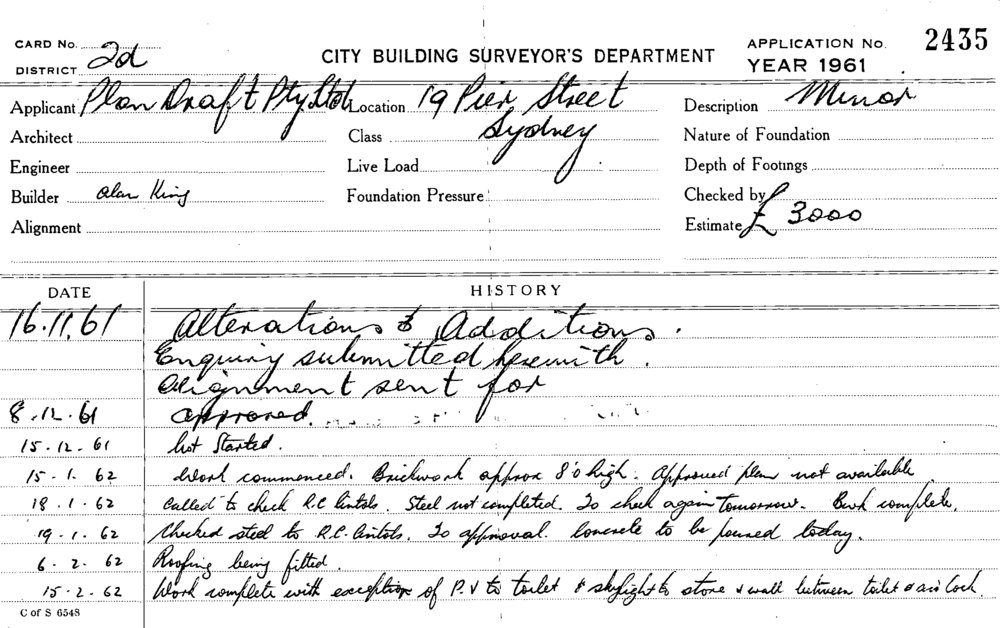 CARD No. 2d
DISTRICT
CITY BUILDING SURVEYOR'S DEPARTMENT
APPLICATION No. 2435
YEAR 1961
Applicant Plan Draft Pty Ltd Location 19 Pier Street Description Minor
Architect Class Sydney Nature of Foundation
Engineer Live Load Depth of Footings
Builder Alan King Foundation Pressure Checked by
Alignment Estimate £ 3000
DATE HISTORY
16.11.61 Alterations & Additions.
Enquiry submitted herewith.
Alignment sent for
8.12.61 approved.
15.12.61 Not Started.
15.1.62 Work commenced. Brickwork approx 8'0 high. Approved plan not available
18.1.62 Called to check R.C lintols. Steel not completed. To check again tomorrow. Bwk complete.
19.1.62 Checked steel to R.C. lintols. To approval. Concrete to be poured today.
6.2.62 Roofing being fitted.
15.2.62 Work complete with exception of P.V to toilet & skylight to store & wall between toilet & air lock.
C of S 6548